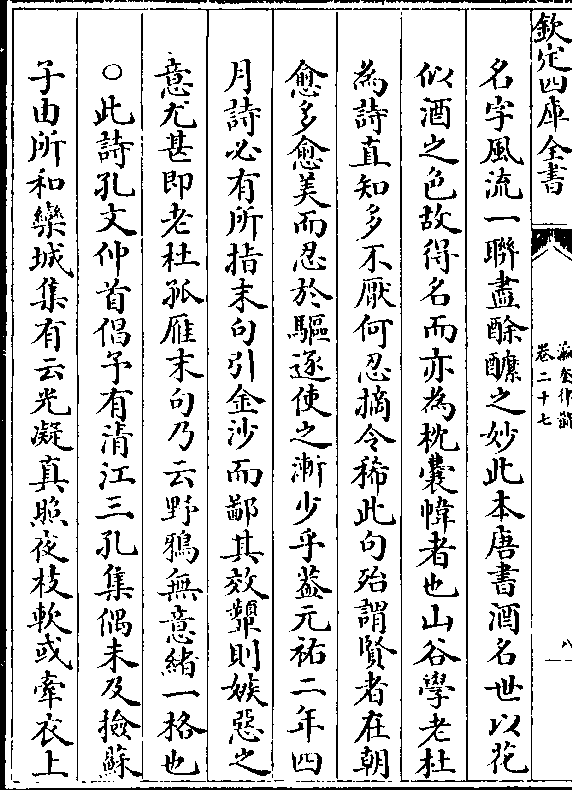 欽定四庫全書
瀛奎律髓
卷二十七
八
名字風流一聯盡酴醿之妙此本唐書酒名世以花
似酒之色故得名而亦為枕囊幃者也山谷學老杜
為詩直知多不厭何忍摘令稀此句殆謂賢者在朝
愈多愈美而忍於驅逐使之漸少乎葢元祐二年四
月詩必有所指末句引金沙而鄙其效顰則嫉惡之
意尤甚即老杜孤雁末句乃云野鴉無意緒一格也
○此詩孔文仲首倡予有清江三孔集偶未及撿蘇
子由所和欒城集有云光凝真照夜枝軟或牽衣上